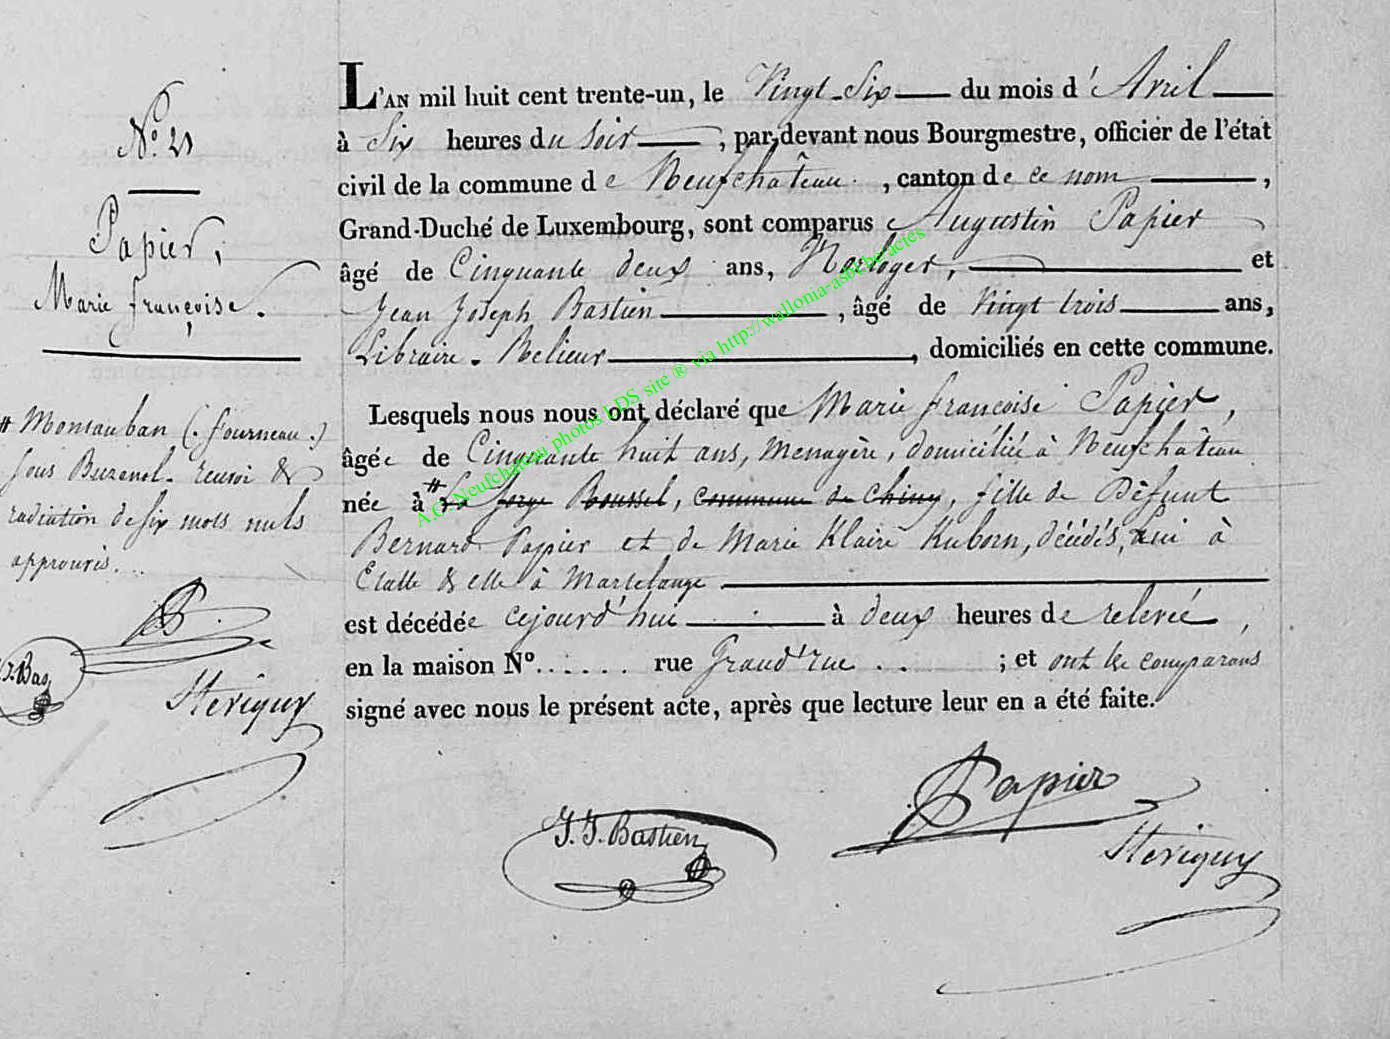 N°. 21
Papier,
Marie françoise.
# Montauban (. fourneau .)
sous Buzenol. renvoi &
radiation de six mots nuls
approuvés.
J.J. Bas
L'AN mil huit cent trente-un, le Vingt-Six du mois d'Avril
à Six heures du Soir, par-devant nous Bourgmestre, officier de l'état
civil de la commune de Neufchâteau, canton de ce nom,
Grand-Duché de Luxembourg, sont comparus Augustin Papier
âgé de Cinquante deux ans, Horloger, et
Jean Joseph Bastien, âgé de Vingt trois ans,
Libraire - Relieur, domiciliés en cette commune.
Lesquels nous nous ont déclaré que Marie françoise Papier,
âgée de Cinquante huit ans, menagère, domiciliée à Neufchâteau
née à # la forge Roussel, commune de Chiny, fille de Défunt
Bernard Papier et de Marie Klaire Kuborn, décédés, lui à
Etalle & elle à Martelange
est décédée cejourd'hui à deux heures de relevée,
en la maison N°...... rue Grand'rue . . ; et ont les comparans
signé avec nous le présent acte, après que lecture leur en a été faite.
Papier
J. J. Bastien
A.C. Neufchateau photos LDS site ® via http://wallonia-asbl.be/actes